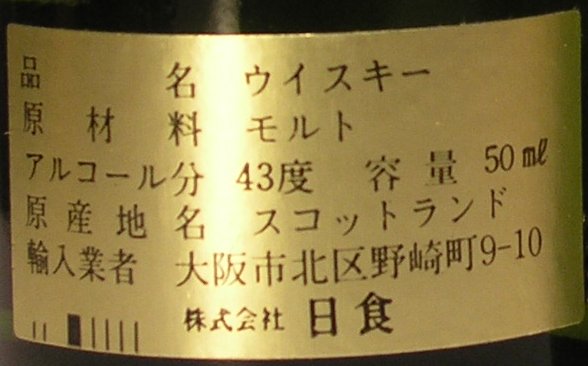 品名 ウイスキー
原材料 モルト
アルコール分 43度 容量 50ml
原産地名 スコットランド
輸入業者 大阪市北区野崎町9-10
株式会社 日食